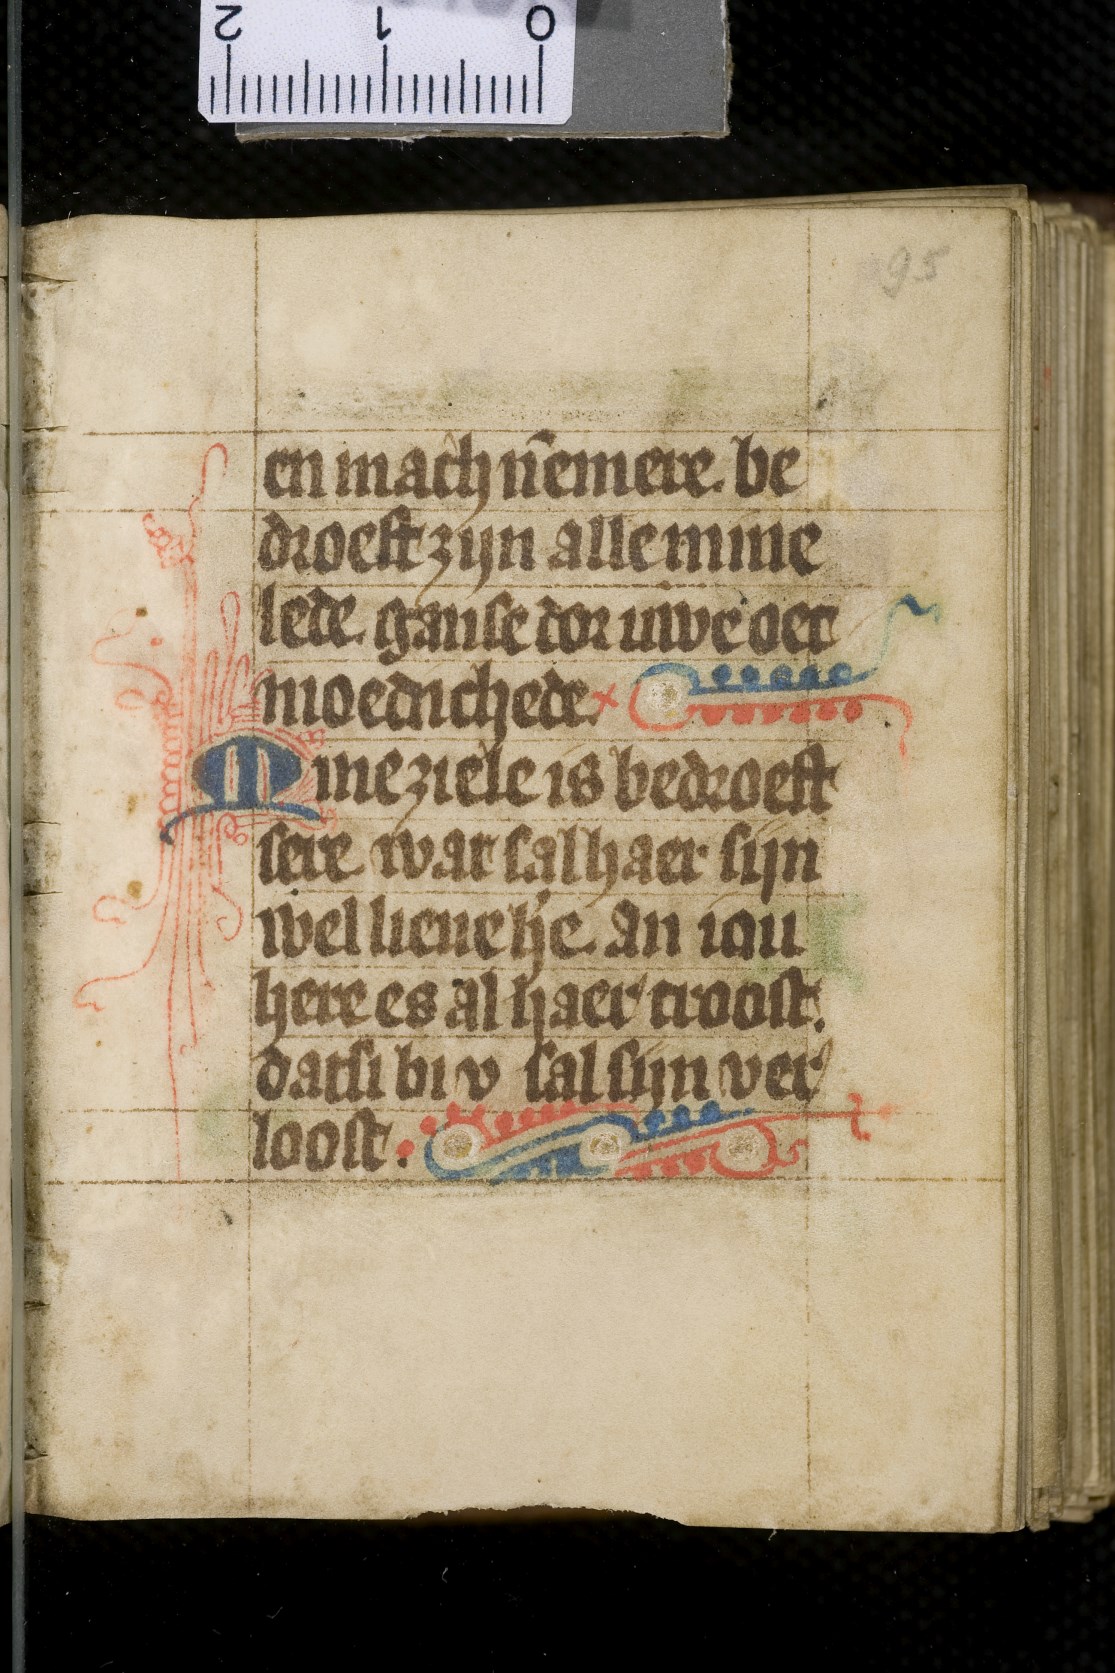 2 1 0
95
en mach nēmere. be
droeft zijn alle mine
lede. ganse dor uwe oet
moedichede.
Mine ziele is bedroeft
sere. war sal haer sijn
wel lieue h̄e. An iou
here es al haer troost.
datsi bi v sal sijn ver
loost.